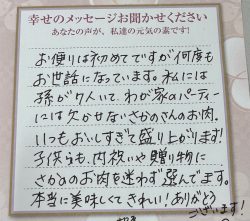 幸せのメッセージお聞かせください
あなたの声が、私達の元気の素です!
お便りは初めてですが何度も
お世話になっています。私には
孫が7人いて、わが家のパーティー
には欠かせないさかのさんのお肉。
いつもおいしすぎて盛り上がります!
子供らも、内祝いや贈り物に
さかのお肉を迷わず選んでます。
本当に美味しくてきれい!ありがとう
ございます!